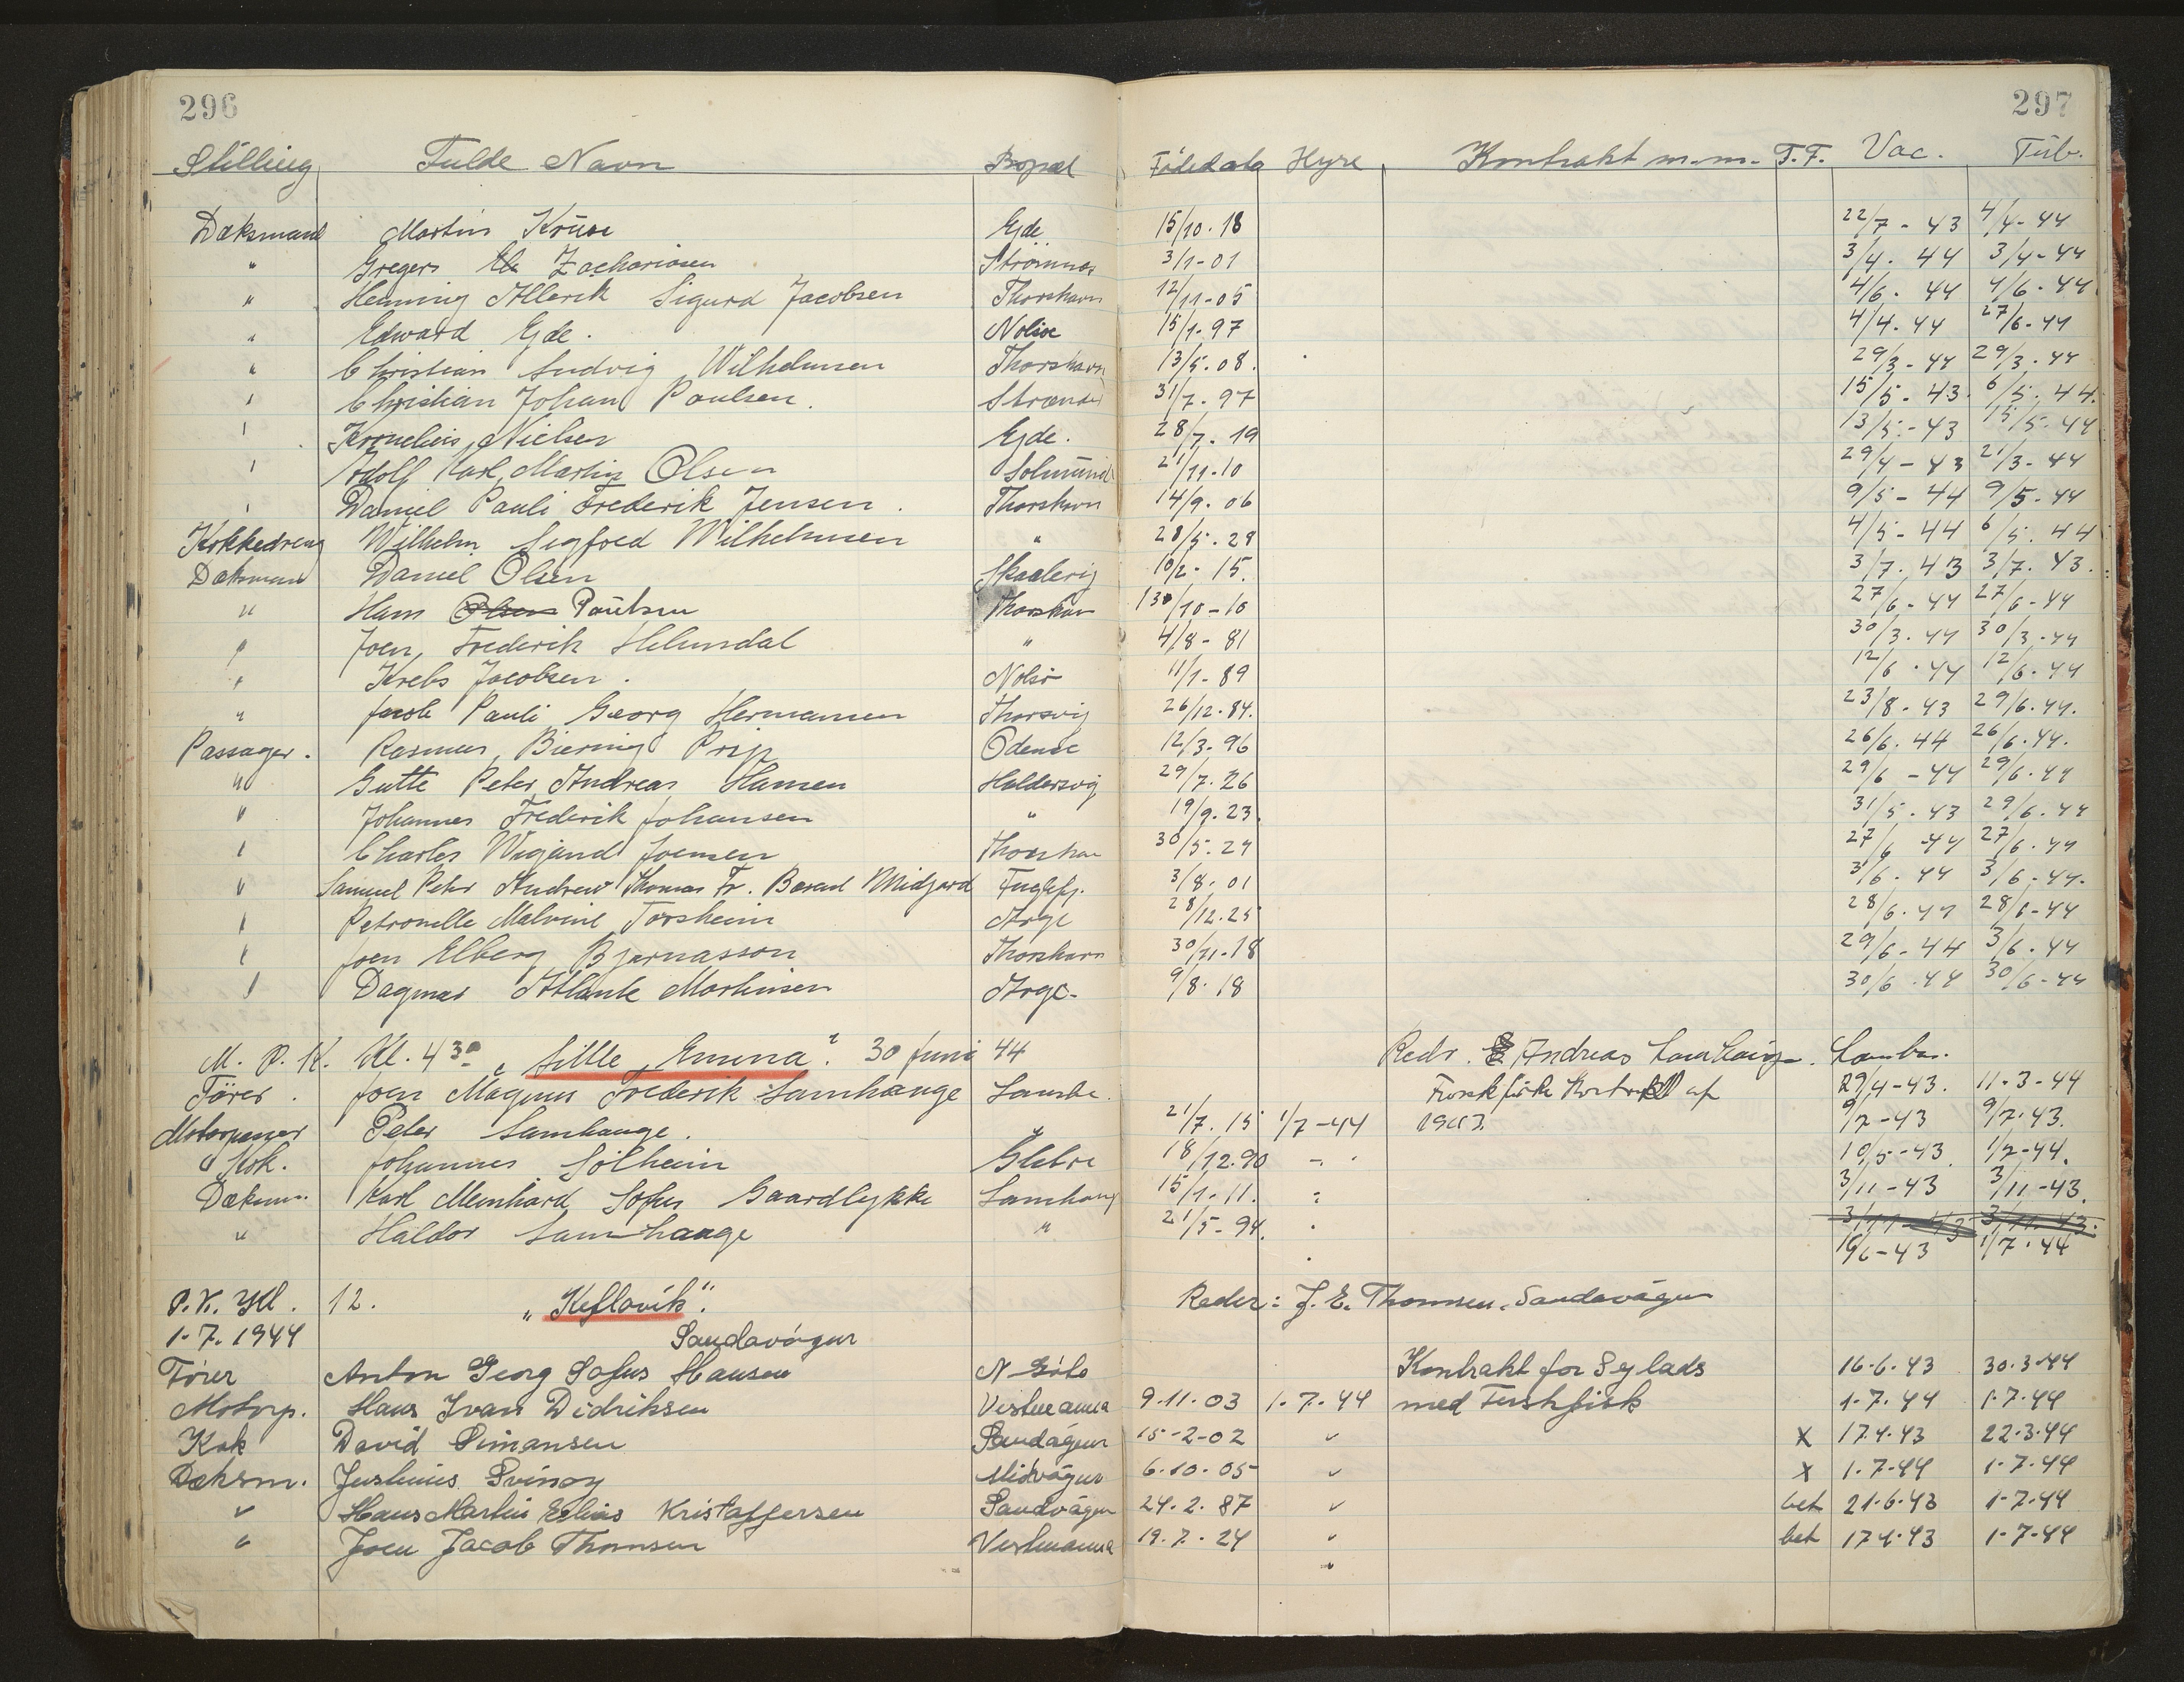 296 297
Stilling Fulde Navn Bopæl Fødedato Hyre Kontrakt m.m. T.F. Vac. Tub.
Dæksmand Martin Krüse Ejde 15/10-18 22/7-43 4/4-44
" Gregers Zachariasen Strömnæs 3/1-01 3/4-44 3/4-44
" Henning Alberik Sigurd Jacobsen Thorshavn 12/11-05 4/6-44 4/6-44
" Edward Ejde. Nolsø 15/1-97 4/4-44 27/6-44
" Christian Ludvig Wilhelmsen Thorshavn 13/5-08. 29/3-44 29/3-44
" Christian Johan Poulsen. Strænder 31/7-97 15/5-43 6/5-44.
" Kornelius Nielsen Ejde. 28/7-19 13/5-43 15/5-44
" Adolf Karl Martin Olsen Solmund 21/11-10 29/4-43 21/3-44
" Daniel Pauli Frederik Jensen. Thorshavn 14/9-06 9/5-44 9/5-44
Kokkedreng Wilhelm Sigfred Wilhelmsen " 28/5-29 4/5-44 6/5-44
Dæksman Daniel Olsen Skaalevig 10/2-15. 3/7-43 3/7-43.
" Hans Olsen Paulsen Thorshavn 30/10-10 27/6-44 27/6-44
" Joen Frederik Helmsdal " 4/8-81 30/3-44 30/3-44
" Krebs Jacobsen. Nolsø 11/1-89 12/6-44 12/6-44
" Jacob Pauli Georg Hermansen Thorsvig 26/12-84. 23/8-43 29/6-44.
Passager. Rasmus Biering Prip Odense 12/3-96 26/6-44 26/6-44.
" Gutte Peter Andreas Hansen Haldersvig 29/7-26 29/6-44 29/6-44
" Johannes Frederik Johansen " 19/9-23. 31/5-43 29/6-44
" Charles Wigand Joensen Thorshavn 30/5-29 27/6-44 27/6-44
" Samuel Peter Andrew Thomas Fr. Midjord Fuglefj. 3/8-01 3/6-44 3/6-44.
" Petronelle Malvine Torsheim Arge 28/12-25 28/6-44 28/6-44
" Joen Elberg Bjarnasson Thorshavn 30/11-18 29/6-44 3/6-44
" Dagmar Atlante Mortensen Arge. 9/8-18 30/6-44 30/6-44
M. P. K. Kl. 4 30 "Lille Emma". 30 Juni 44 Redr. Andreas Lamhauge. Lamba.
Förer. Joen Magnus Frederik Lamhauge Lamba. Kontrakt af 29/4-43. 11-3-44
Motorpasser Peter Lamhauge. " 21/7-15 1/7-44 1943. 9/7-43 9/7-43.
Kok. Johannes Sólheim Glibre 18/12-90 - " 10/5-43 1/7-44.
Dæksm. Karl Meinhard Sofus Gaardlykke Lamhaug 15/1-11. " 3/11-43 3/11-43.
" Haldor Lamhauge " 21/5-94. " 3/11-43 3/11-43.
16/6-43 1/7-44
P.K. Kl. 12. "Keflavík". Reder: J. E. Thomsen, Sandavágur
1-7.1944 Sandavágur
Förer Anton Georg Sofus Hansen N Göto Kontrakt for Sejlads 16-6-43 30.3-44
Motorp. Hans Ivan Didriksen Vestmanna 9-11-03 1-7-44 med Ferskfisk 1-7-44 1-7-44
Kok David Simonsen Sandágur 15-2-02 " x 17-4-43 22-3-44
Dæksm. Justinus Svinoy Midvágur 6-10-05 " x 1-7-44 1-7-44
" Hans Martin Elias Kristoffersen Sandvágur 24-2-87 " bet 21-6-43 1-7-44
" Joen Jacob Thomsen Vestmanna 19-7-24 " bet 17-4-43 1-7-44
"